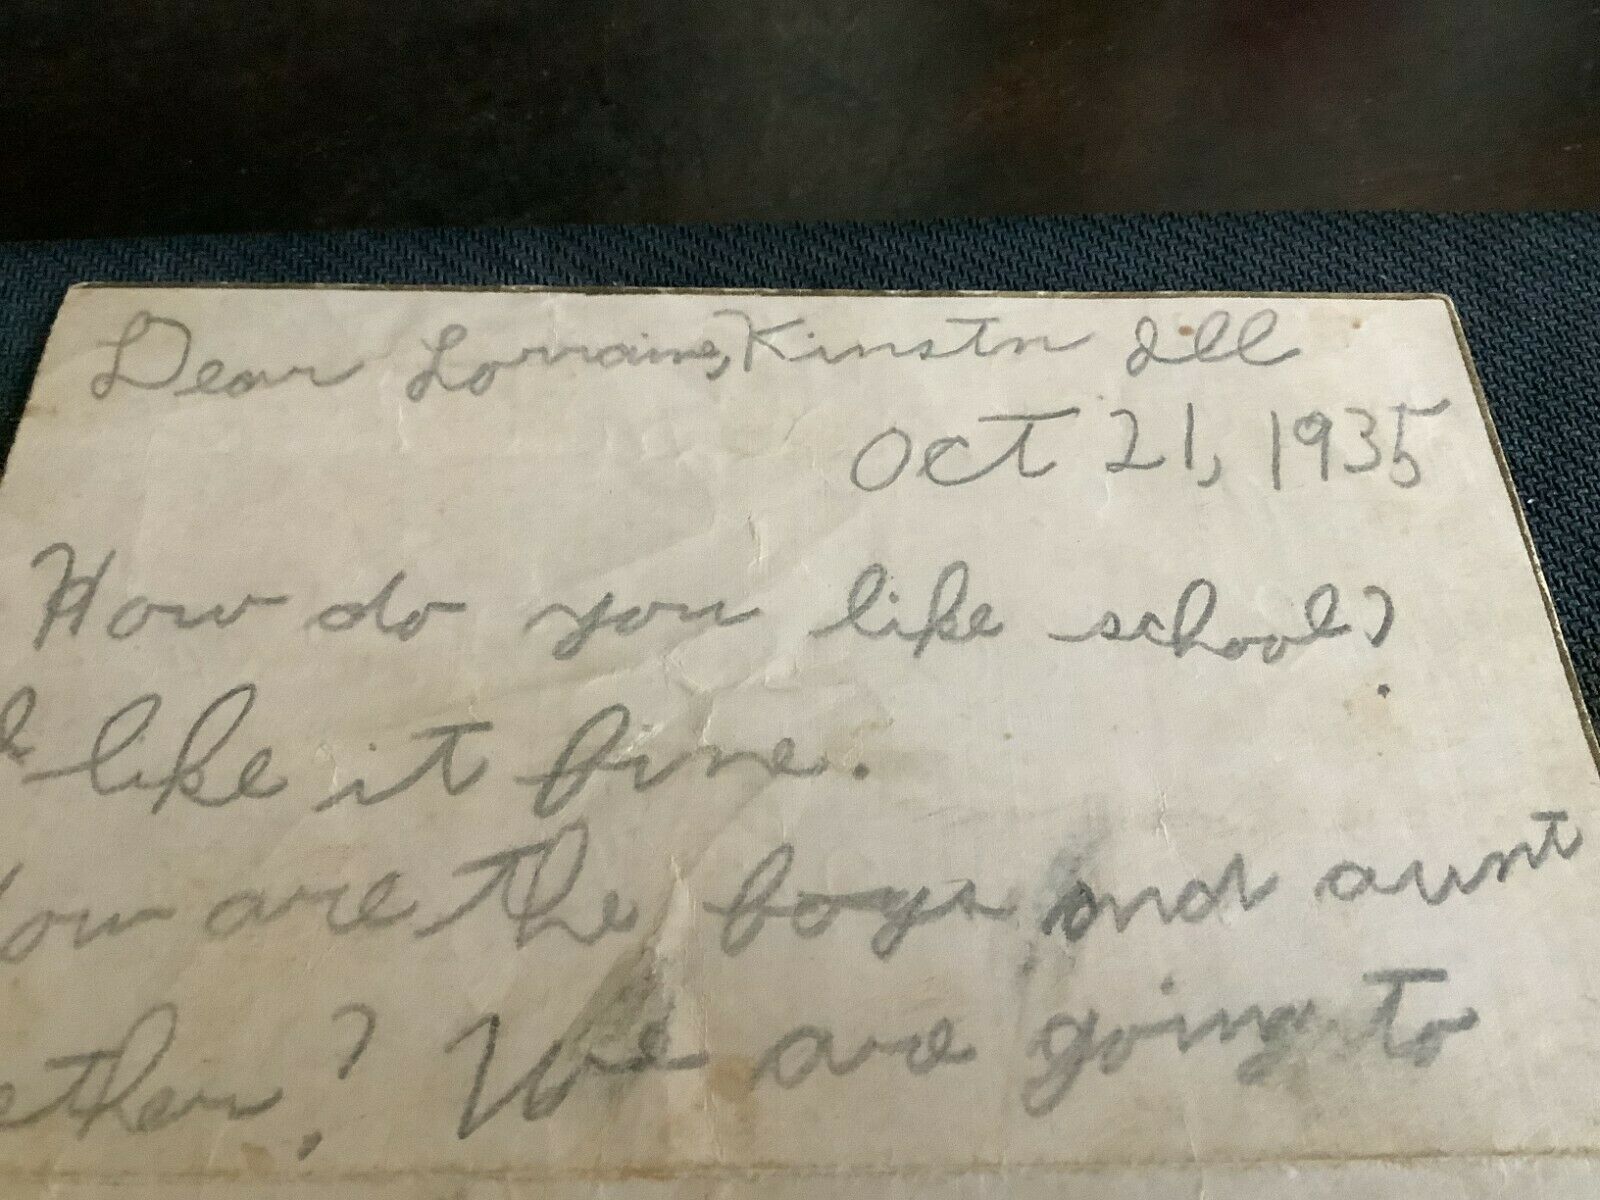 Dear Lorraine, Kinstn Ill
Oct 21, 1935
How do you like school?
I like it fine.
How are the boys and aunt
? We are going to